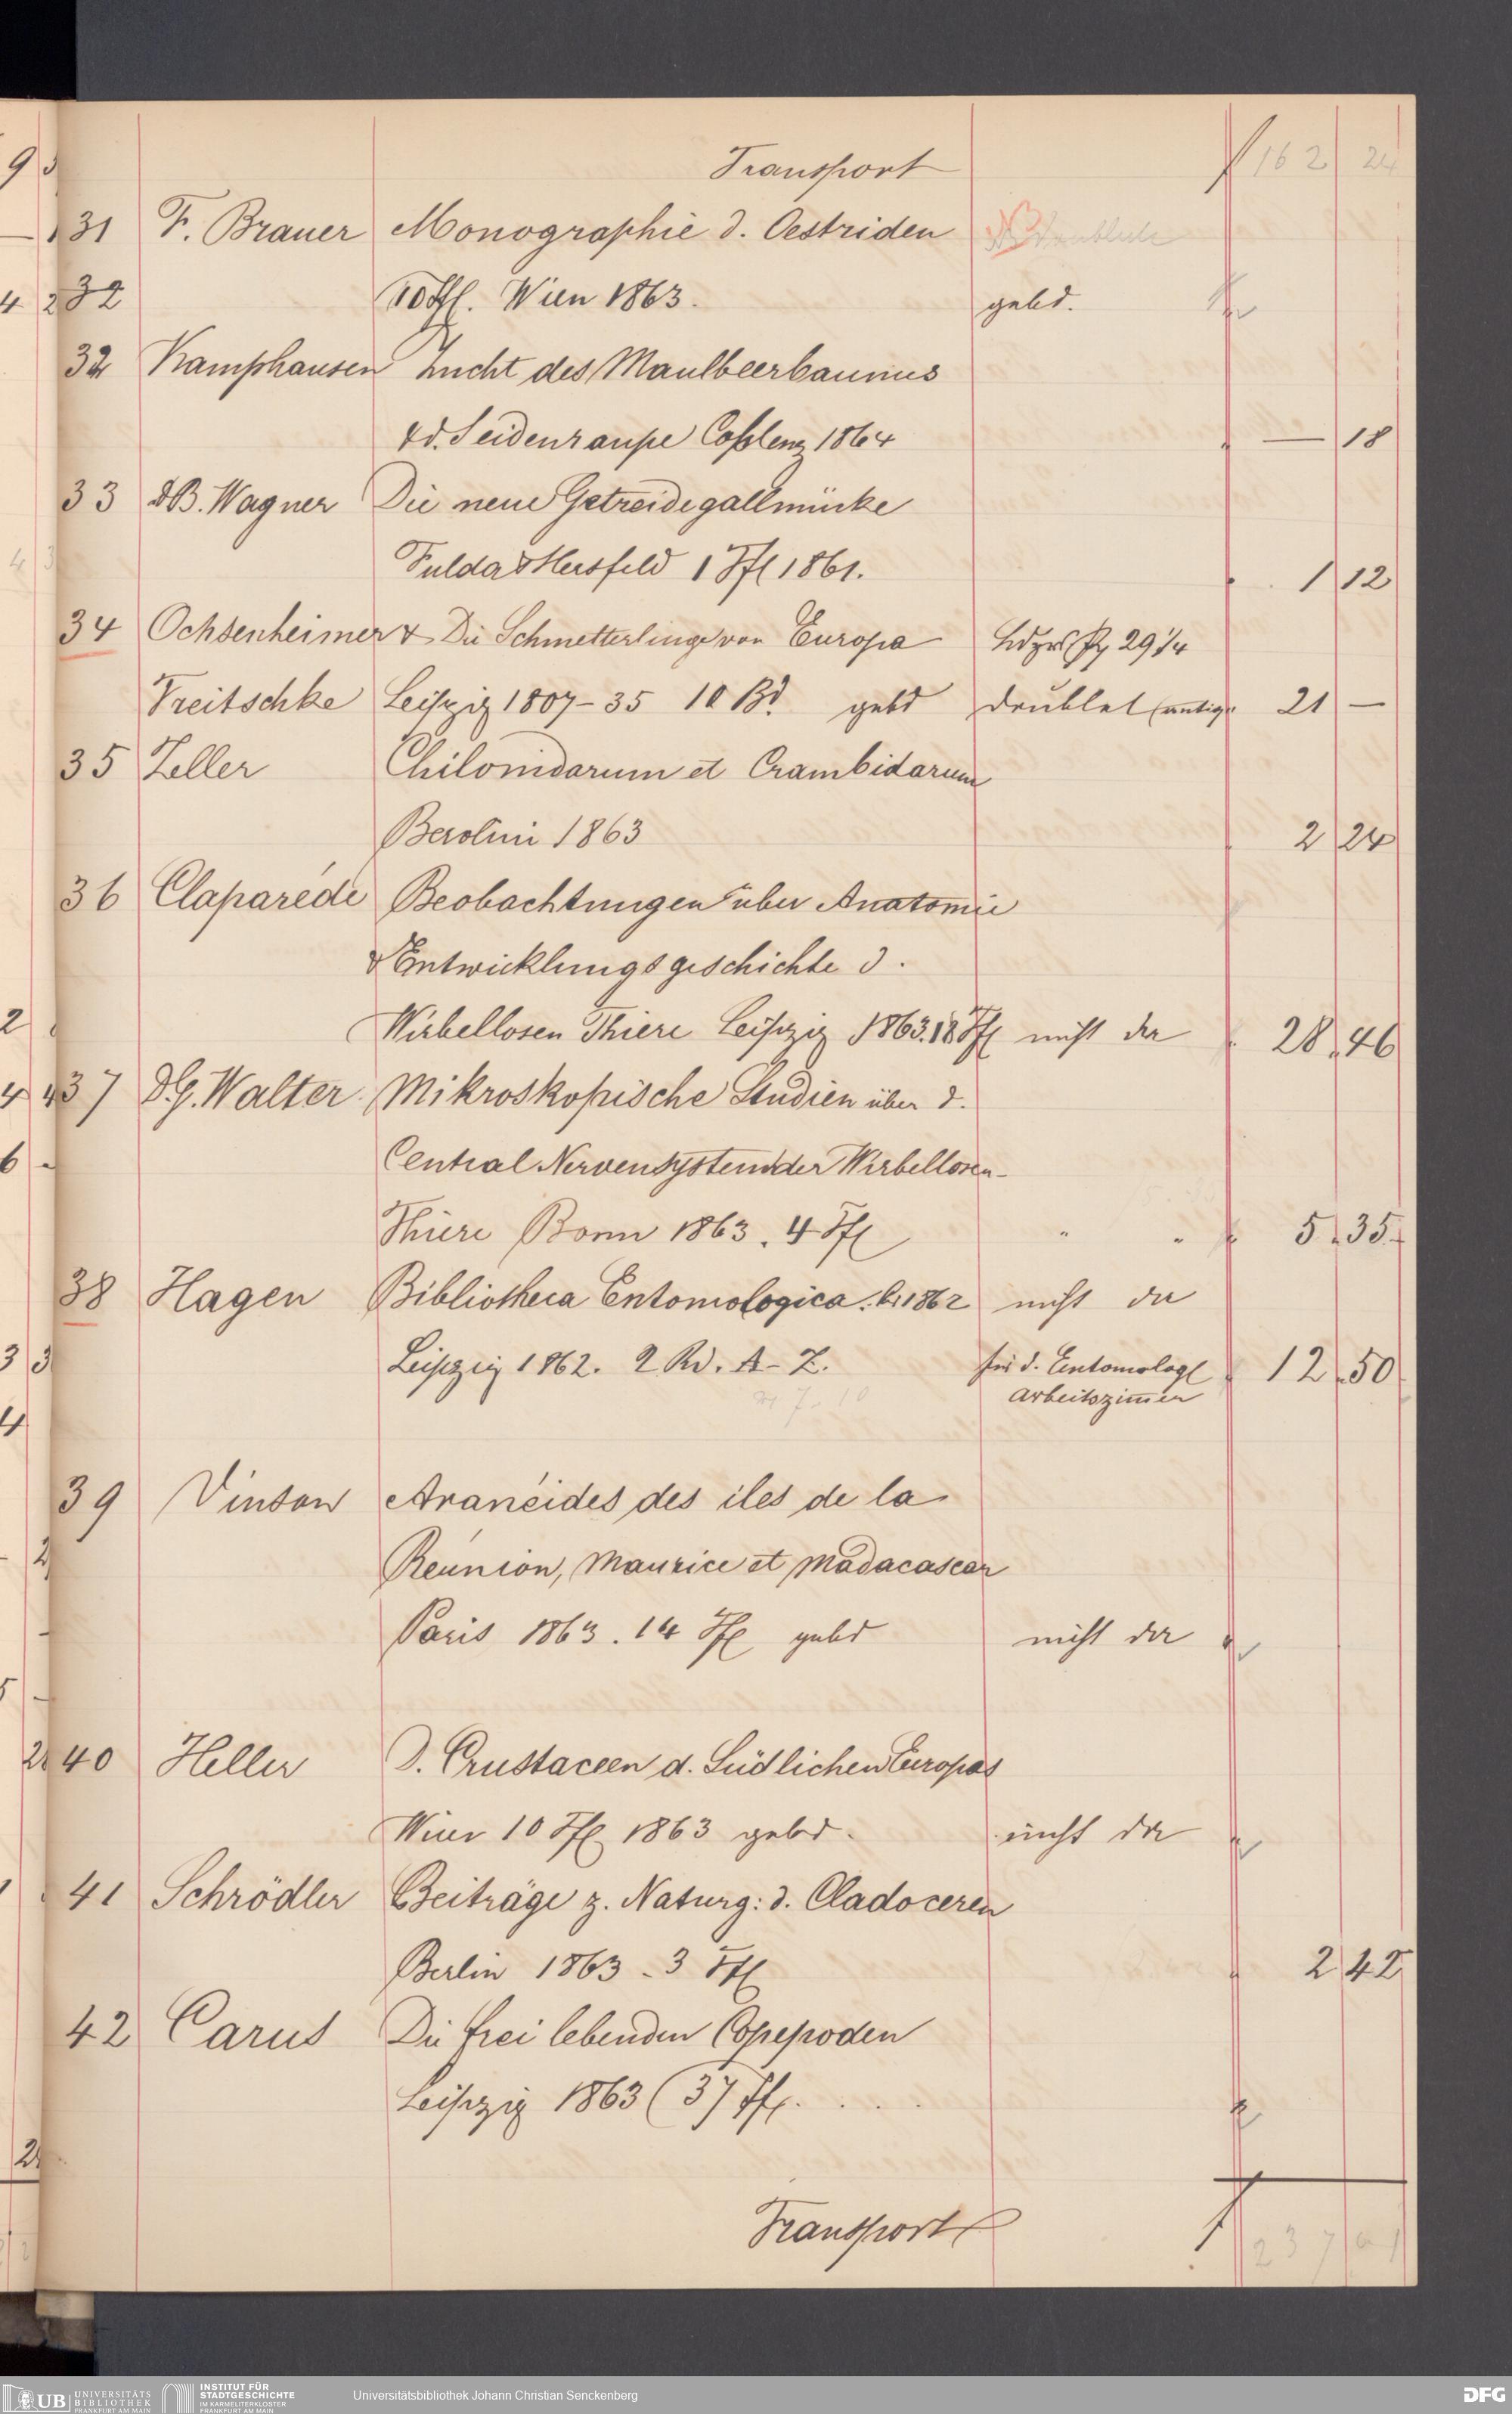 Transport 162 24
31 F. Brauer Monographie d. Oestriden
32 10 Tfl. Wien 1863. gebd.
32 Kamphausen Zucht des Maulbeerbaumes
& d. Seidenraupe Coblenz 1864 — 18
33 B. Wagner Die neue Getreidegallmücke
Fulda & Hersfeld 1 Tfl 1861. 1 12
34 Ochsenheimer & Die Schmetterlinge von Europa 29 1/4
Treitschke Leipzig 1807-35 10 Bd. gebd doublet antiq. 21 —
35 Zeller Chilonidarum et Crambidarum
Berolini 1863 2 24
36 Claparéde Beobachtungen über Anatomie
& Entwicklungsgeschichte d.
Wirbellosen Thiere Leipzig 1863. 18 Tfl nicht da 28 46
37 G. Walter Mikroskopische Studien über d.
Central Nervensystem der Wirbellosen
Thiere Bonn 1863. 4 Tfl " " 5 35
38 Hagen Bibliotheca Entomologica. bis 1862 nicht da
Leipzig 1862. 2 Bd. A-Z. für d. Entomolog 12 50
arbeitszimmer
39 Vinson Aranéides des iles de la
Réunion, Maurice et Madacascar
Paris 1863. 14 Tfl gebd nicht da
40 Heller D. Crustaceen d. Südlichen Europas
Wien 10 Tfl 1863 gebd. nicht da
41 Schrödler Beiträge z. Naturg: d. Cladoceren
Berlin 1863 - 3 Tfl 2 42
42 Carus Die frei lebenden Copepoden
Leipzig 1863 (37 Tfl. . . . .
Transport 237
UB UNIVERSITÄTS
BIBLIOTHEK
FRANKFURT AM MAIN
INSTITUT FÜR
STADTGESCHICHTE
IM KARMELITERKLOSTER
FRANKFURT AM MAIN
Universitätsbibliothek Johann Christian Senckenberg
DFG